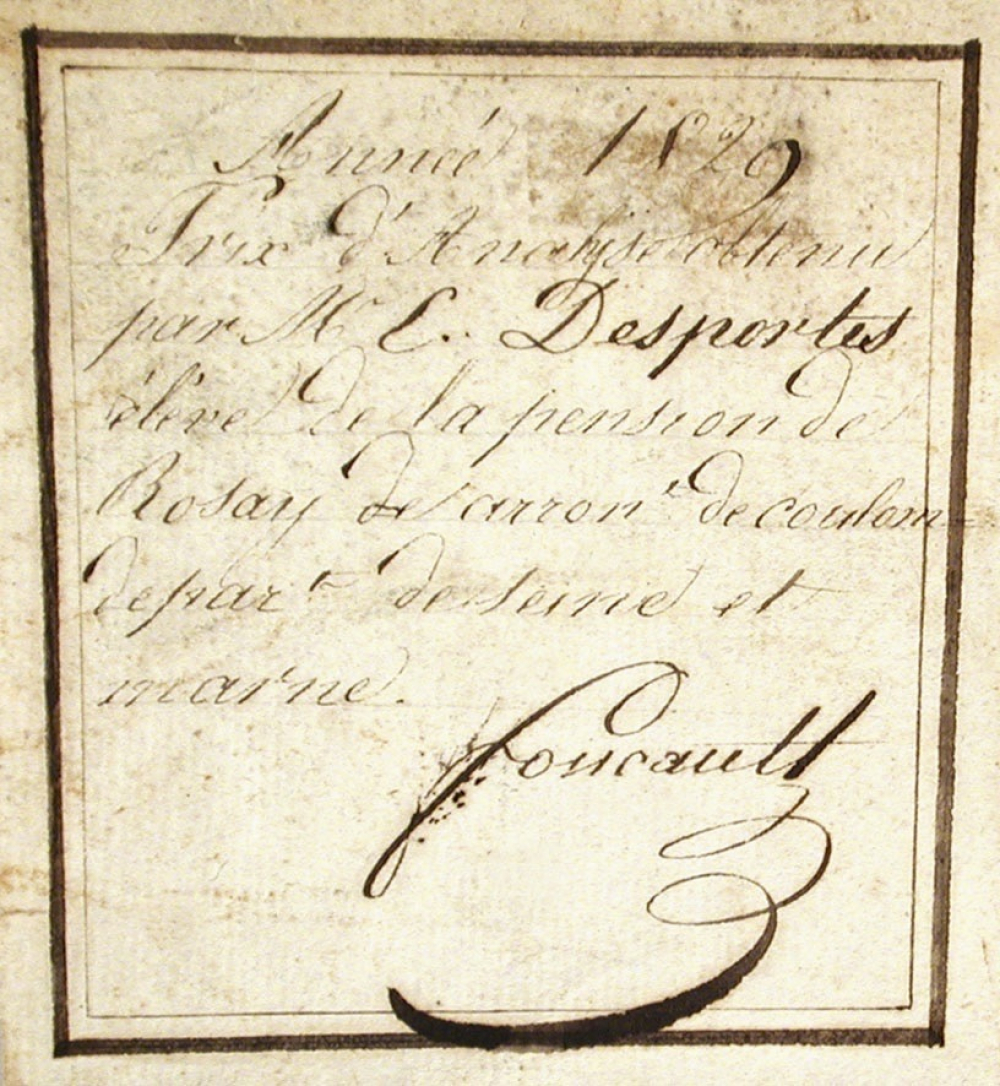 Année 1829
Prix d'Analyse obtenu
par Mr E. Desportes
élève de la pension de
Rosay de arront de coulom=
depart de seine et
marne.
Foucault